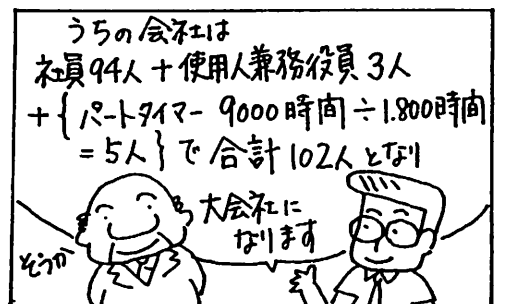 うちの会社は
社員94人＋使用人兼務役員3人
＋{パートタイマー 9000時間÷1.800時間
＝5人}で合計102人となり
大会社に
なります
そうか